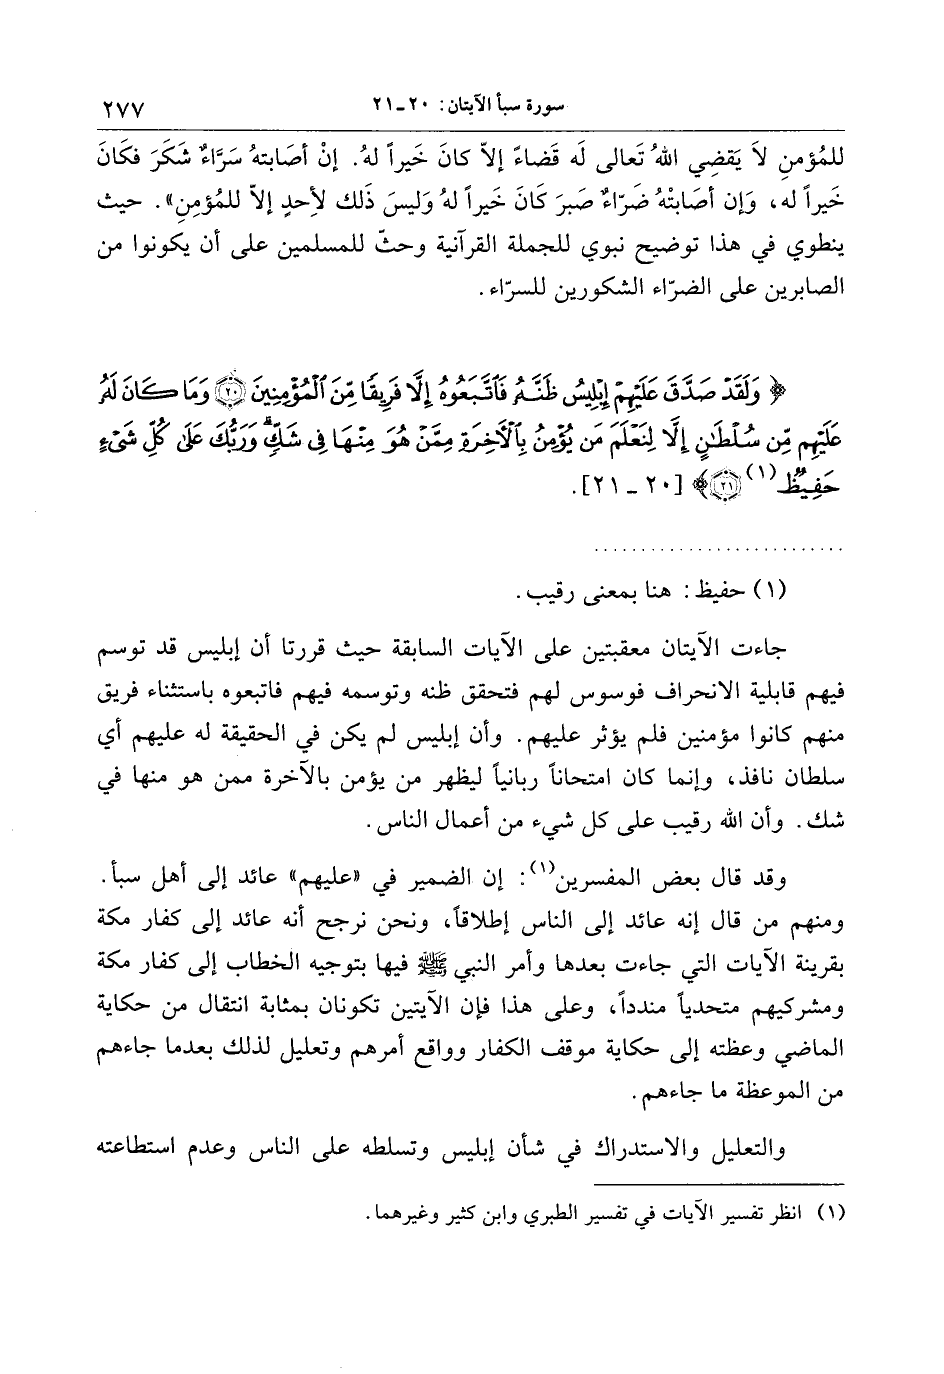 سورة سبأ الآيتان: ٢٠ـ٢١
٢٧٧
للمُؤمنِ لاَ يَقضِي اللهُ تَعالى لَه قَضاءً إلاّ كانَ خَيراً لهُ. إنْ أصَابتهُ سَرَّاءٌ شَكَرَ فكَانَ
خَيراً له، وَإن أصَابَتْهُ ضَرّاءٌ صبَرَ كَانَ خَيراً لهُ وَليسَ ذَلك لأحِدٍ إلاّ للمُؤمِنِ». حيث
ينطوي في هذا توضيح نبوي للجملة القرآنية وحثّ للمسلمين على أن يكونوا من
الصابرين على الضرّاء الشكورين للسرّاء.
﴿ وَلَقَدْ صَدَّقَ عَلَيْهِمْ إِبْلِيسُ ظَنَّهُۥ فَٱتَّبَعُوهُ إِلَّا فَرِيقًا مِّنَ ٱلْمُؤْمِنِينَ ﴿٢٠﴾ وَمَا كَانَ لَهُۥ
عَلَيْهِم مِّن سُلْطَٰنٍ إِلَّا لِنَعْلَمَ مَن يُؤْمِنُ بِٱلْآخِرَةِ مِمَّنْ هُوَ مِنْهَا فِى شَكٍّ ۗ وَرَبُّكَ عَلَىٰ كُلِّ شَىْءٍ
حَفِيظٌ(١) ﴿٢١﴾ ﴾ [٢٠ ـ ٢١].
...........................
(١) حفيظ: هنا بمعنى رقيب.
جاءت الآيتان معقبتين على الآيات السابقة حيث قررتا أن إبليس قد توسم
فيهم قابلية الانحراف فوسوس لهم فتحقق ظنه وتوسمه فيهم فاتبعوه باستثناء فريق
منهم كانوا مؤمنين فلم يؤثر عليهم. وأن إبليس لم يكن في الحقيقة له عليهم أي
سلطان نافذ، وإنما كان امتحاناً ربانياً ليظهر من يؤمن بالآخرة ممن هو منها في
شك. وأن الله رقيب على كل شيء من أعمال الناس.
وقد قال بعض المفسرين(١): إن الضمير في «عليهم» عائد إلى أهل سبأ.
ومنهم من قال إنه عائد إلى الناس إطلاقاً، ونحن نرجح أنه عائد إلى كفار مكة
بقرينة الآيات التي جاءت بعدها وأمر النبي ﷺ فيها بتوجيه الخطاب إلى كفار مكة
ومشركيهم متحدياً مندداً، وعلى هذا فإن الآيتين تكونان بمثابة انتقال من حكاية
الماضي وعظته إلى حكاية موقف الكفار وواقع أمرهم وتعليل لذلك بعدما جاءهم
من الموعظة ما جاءهم.
والتعليل والاستدراك في شأن إبليس وتسلطه على الناس وعدم استطاعته
(١) انظر تفسير الآيات في تفسير الطبري وابن كثير وغيرهما.